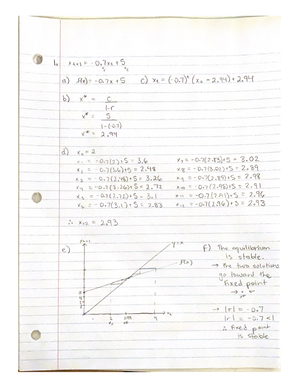 1. xt+1 = -0.7xt + 5
a) f(x) = -0.7x + 5 c) xt = (-0.7)^t (x0 - 2.94) + 2.94
b) x* = c / 1-r
x* = 5 / 1-(-0.7)
x* = 2.94
d) x0 = 2
x1 = -0.7(2)+5 = 3.6
x2 = -0.7(3.6)+5 = 2.48
x3 = -0.7(2.48)+5 = 3.26
x4 = -0.7(3.26)+5 = 2.72
x5 = -0.7(2.72)+5 = 3.1
x6 = -0.7(3.1)+5 = 2.83
x7 = -0.7(2.83)+5 = 3.02
x8 = -0.7(3.02)+5 = 2.89
x9 = -0.7(2.89)+5 = 2.98
x10 = -0.7(2.98)+5 = 2.91
x11 = -0.7(2.91)+5 = 2.96
x12 = -0.7(2.96)+5 = 2.93
∴ x12 = 2.93
e)
xt+1
y=x
f(x)
xt
f) The equilibrium
is stable.
→ The two solutions
go toward the
fixed point
→ |r| = -0.7
|r| = -0.7 < 1
∴ fixed point
is stable